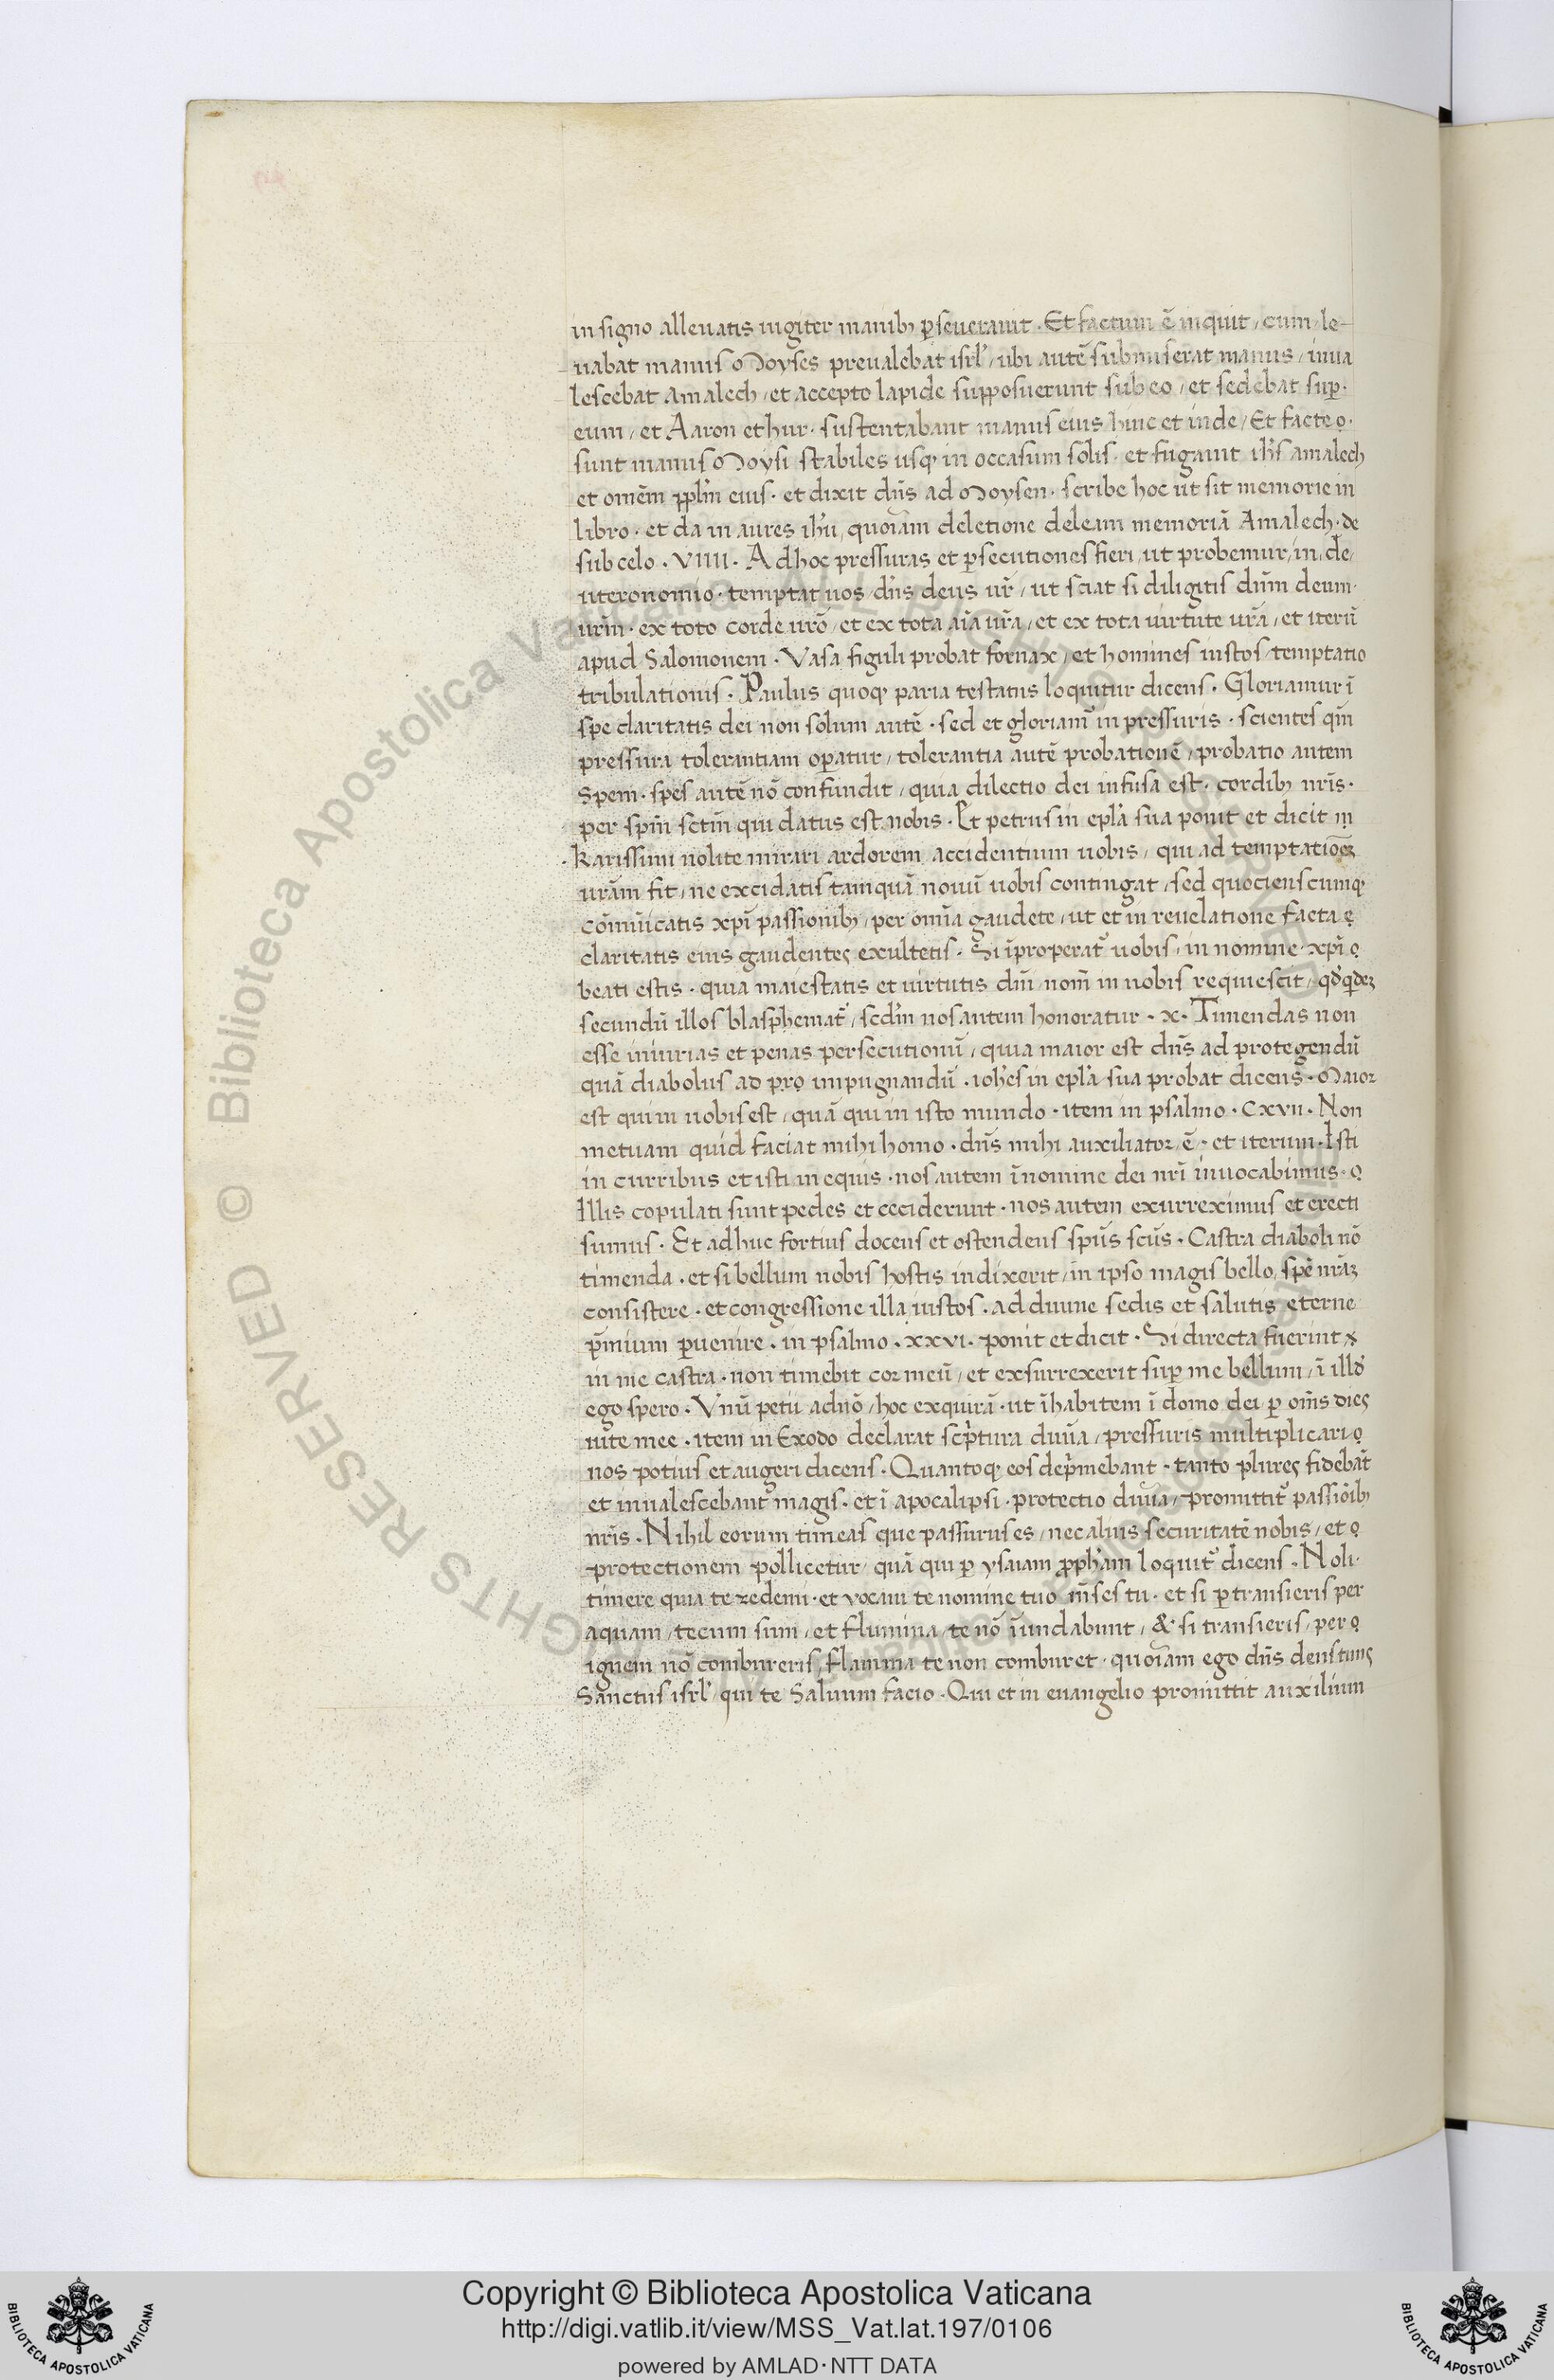 in signo alleuatis iugiter manibꝫ ꝑseuerauit · Et factum ē inquit / cum / le-
uabat manus Moyses preualebat isrl̓ / ubi autē submiserat manus / inua
lescebat Amalech / et accepto lapide supposuerunt sub eo / et sedebat suꝑ ·
eum / et Aaron et hur · sustentabant manus eius / hinc et inde / Et facte ·
sunt manus Moysi stabiles usqꝫ in occasum solis · et fugauit ih̓s amalech
et omēm ppl̓m eius · et dixit dn̄s ad Moysen · scribe hoc ut sit memorie in
libro · et da in aures ih̓u / quoīam deletione deleam memoriā Amalech · de
sub celo · VIIII · Ad hoc pressuras et ꝑsecutiones fieri / ut probemur / in / de /
uteronomio · temptat uos / dn̄s deus ur̄ / ut sciat si diligitis dūm deum ·
urm̄ · ex toto corde urō / et ex tota aīa ur̄a / et ex tota uirtute ur̄a / et iterū
apud Salomonem · Vasa figuli probat fornax / et homines iustos / temptatio
tribulationis · Paulus quoqꝫ paria testatus loquitur dicens · Gloriamur ī
spe claritatis dei non solum autē · sed et gloriamᷣ in pressuris · scientes qm̄
pressura tolerantiam oꝑatur / tolerantia autē probationē / probatio autem
spem · spes autē nō confundit / quia dilectio dei infusa est · cordibꝫ nr̄is ·
per spm̄ sctm̄ qui datus est nobis · Et petrus in epl̓a sua ponit et dicit
· Karissimi nolite mirari ardorem accidentium uobis / qui ad temptatiōeꝫ
urām fit / ne excidatis tamquā nouū uobis contingat / sed quocienscumqꝫ
cōmūicatis xp̄i passionibꝫ / per omīa gaudete / ut et in reuelatione facta
claritatis eius gaudentes exultetis · Si īproperatᷣ uobis / in nomine · xp̄i
beati estis · quia maiestatis et uirtutis dn̄i / nom̄ in uobis requiescit /
secundū illos blasphematᷣ / scd̓m nos autem honoratur · x · Timendas non
esse iniurias et penas persecutionū / quia maior est dn̄s ad protegendū
quā diabolus ad pro impugnandū · ioh̓es in epl̓a sua probat dicens · Maior
est qui in uobis est / quā qui in isto mundo · item in psalmo · CXVII · Non
metuam quid faciat mihi homo · dn̄s mihi auxiliator / ē · et iterum · Isti
in curribus et isti in equis · nos autem ī nomine dei nr̄i inuocabimus ·
Illis copulati sunt pedes et ceciderunt · nos autem exurreximus et erecti
sumus · Et adhuc fortius docens et ostendens spūs scūs · Castra diaboli nō
timenda · et si bellum nobis hostis indixerit / in ipso magis bello / spē nrāꝫ
consistere · et congressione illa iustos · ad diuine sedis et salutis eterne
p̄mium ꝑuenire · in psalmo · XXVI · ponit et dicit · Si directa fuerint
in me castra · non timebit cor meū / et exsurrexerit suꝑ me bellum / ī illo
ego spero · Vnū petii a dn̄ō / hoc exquirā · ut īhabitem ī domo dei ꝑ omīs dies
uite mee · item in Exodo declarat scp̓tura diuīa / pressuris multiplicari
nos potius et augeri dicens · Quantoqꝫ eos dep̓mebant · tanto plures fidebāt
et inualescebantᷣ magis · et ī apocalipsi · protectio diuīa / promittitᷣ passiōibꝫ
nr̄is · Nihil eorum timeas que passurus es / nec alius securitatē nobis / et
protectionem pollicetur / quā qui ꝑ ysaiam ꝓph̓am loquitᷣ dicens · Noli ·
timere quia te redemi · et vocaui te nomine tuo m̄s es tu · et si ꝑtransieris per
aquam / tecum sum / et flumina / te nō īundabunt / & si transieris / per
ignem nō combureris / flamma te non comburet · quoīam ego dn̄s deus tuus
Sanctus isrl̓ / qui te Saluum facio · Qui et in euangelio promittit auxilium
Copyright © Biblioteca Apostolica Vaticana
http://digi.vatlib.it/view/MSS_Vat.lat.197/0106
powered by AMLAD·NTT DATA
BIBLIOTECA APOSTOLICA VATICANA
BIBLIOTECA APOSTOLICA VATICANA